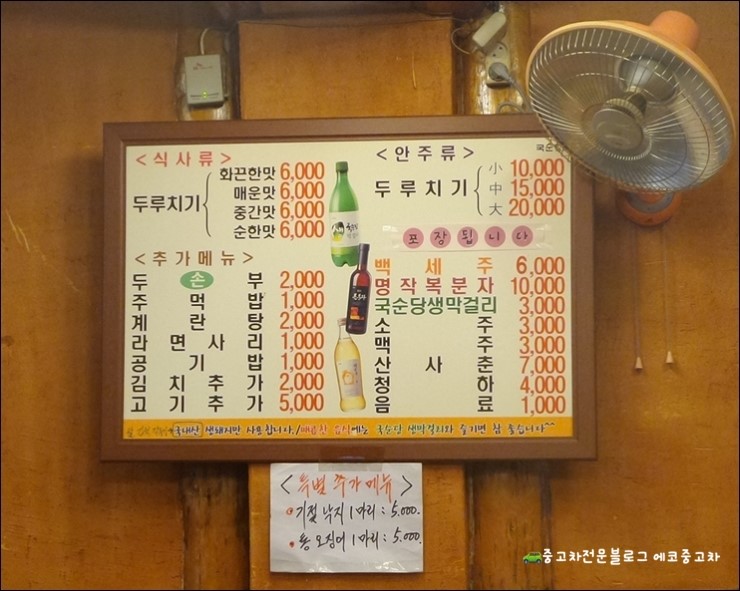 <식사류>
두루치기
화끈한맛 6,000
매운맛 6,000
중간맛 6,000
순한맛 6,000
<추가메뉴>
두손부 2,000
주먹밥 1,000
계란탕 2,000
라면사리 1,000
공기밥 1,000
김치추가 2,000
고기추가 5,000
<안주류>
두루치기
小 10,000
中 15,000
大 20,000
포장됩니다
백세주 6,000
명작복분자 10,000
국순당생막걸리 3,000
소주 3,000
맥주 3,000
산사춘 7,000
청하 4,000
음료 1,000
국내산 생돼지만 사용합니다./매콤한 음식에는 국순당 생막걸리와 즐기면 참 좋습니다^^
<특별 추가메뉴>
기절 낙지 1마리 : 5.000.
통 오징어 1마리 : 5.000.
중고차전문블로그 에코중고차